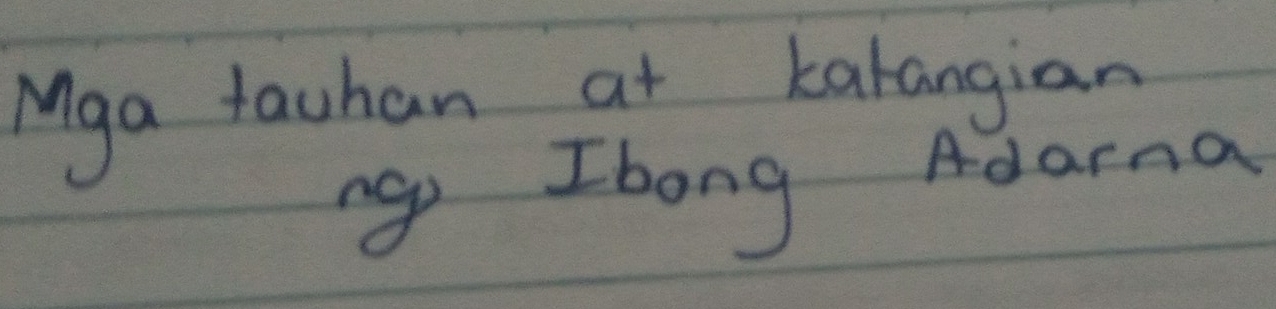 Mga tauhan at katangian
ng Ibong Adarna